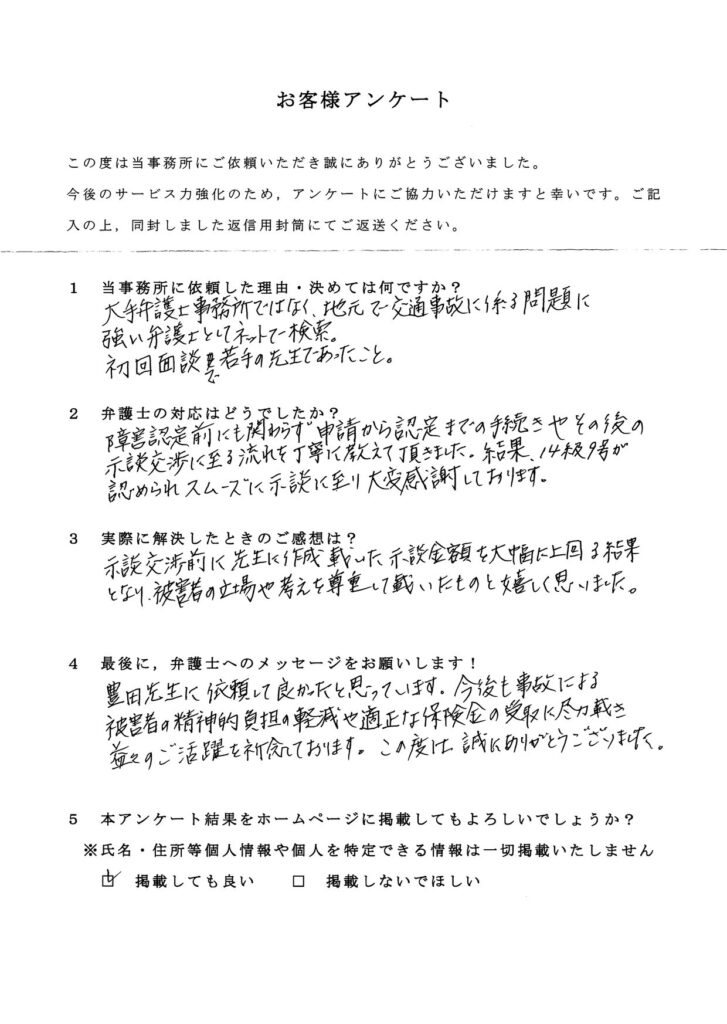 お客様アンケート
この度は当事務所にご依頼いただき誠にありがとうございました。
今後のサービス力強化のため，アンケートにご協力いただけますと幸いです。ご記
入の上，同封しました返信用封筒にてご返送ください。
1 当事務所に依頼した理由・決めては何ですか？
大手弁護士事務所ではなく、地元で交通事故に係る問題に
強い弁護士としてネットで検索。
初回面談で若手の先生であったこと。
2 弁護士の対応はどうでしたか？
障害認定前にも関わらず申請から認定までの手続きやその後の
示談交渉に至る流れを丁寧に教えて頂きました。結果、14級9号が
認められスムーズに示談に至り大変感謝しております。
3 実際に解決したときのご感想は？
示談交渉前に先生に作成載いた示談金額を大幅に上回る結果
となり、被害者の立場や考えを尊重して載いたものと嬉しく思いました。
4 最後に，弁護士へのメッセージをお願いします！
豊田先生に依頼して良かったと思っています。今後も事故による
被害者の精神的負担の軽減や適正な保険金の受取に尽力載き
益々のご活躍を祈念しております。この度は誠にありがとうございました。
5 本アンケート結果をホームページに掲載してもよろしいでしょうか？
※氏名・住所等個人情報や個人を特定できる情報は一切掲載いたしません
☑ 掲載しても良い □ 掲載しないでほしい